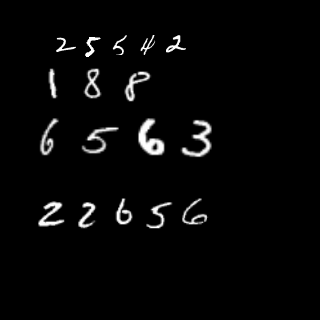 2 5 5 4 2
1 8 8
6 5 6 3
2 2 6 5 6